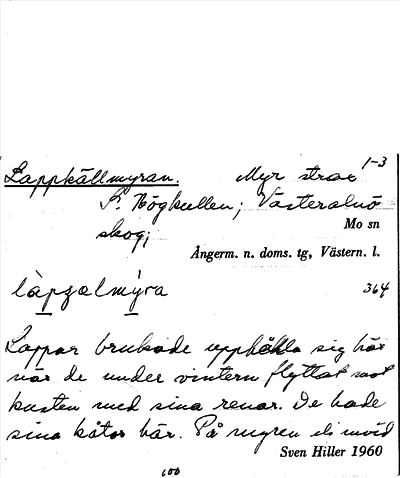 1-3
Lappkällmyran. Myr strax
S. Högkullen; Västeralnö
skog;
Mo sn
Ångerm. n. doms. tg, Västern. l.
làpʒælmýra 364
Lappar brukade uppehålla sig här
när de under vintern flyttat mot
kusten med sina renar. De hade
sina kåtor här. På myren el. invid
Sven Hiller 1960
100